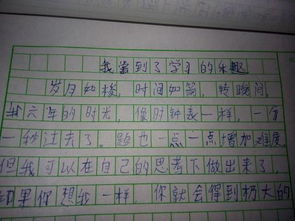 我尝到了学习的乐趣
岁月如梭，时间如箭，转眼间，
我六年的时光，像时钟表一样，一分
一秒过去了。题也一点一点增加难度
但我可以在自己的思考下做出来了，
如果你想我一样，你就会得到极大的